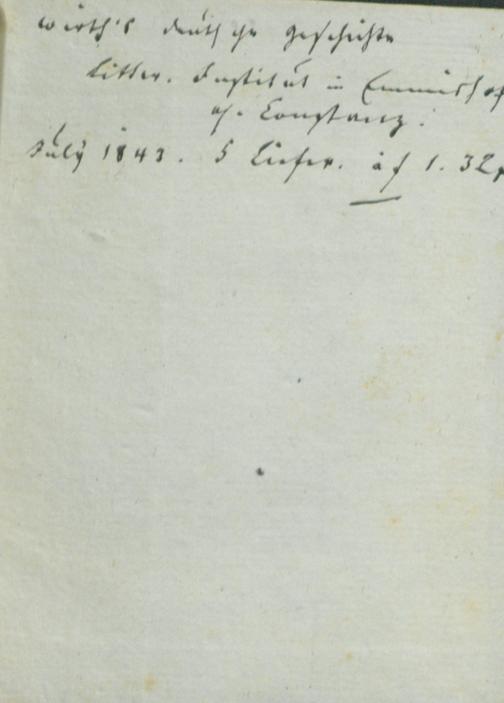 Wirth's deutsche Geschichte
Litter. Institut in Emmishof
b. Constanz.
July 1843. 5 Liefer. à f 1. 32